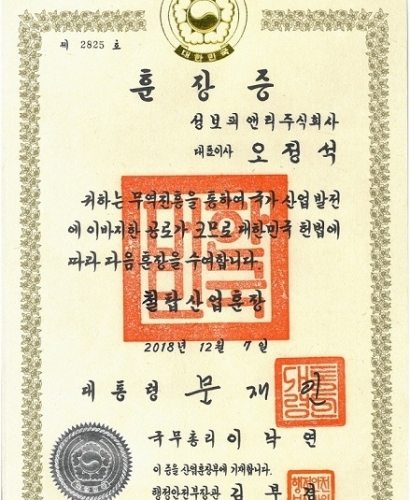 대한민국
제 2825 호
훈장증
성보피앤리주식회사
대표이사 오정석
귀하는 무역진흥을 통하여 국가 산업 발전
에 이바지한 공로가 크므로 대한민국 헌법에
따라 다음 훈장을 수여합니다.
철탑산업훈장
2018년 12월 7일
대통령 문재인
국무총리 이낙연
이 증을 산업훈장부에 기재합니다.
행정안전부장관 김부겸